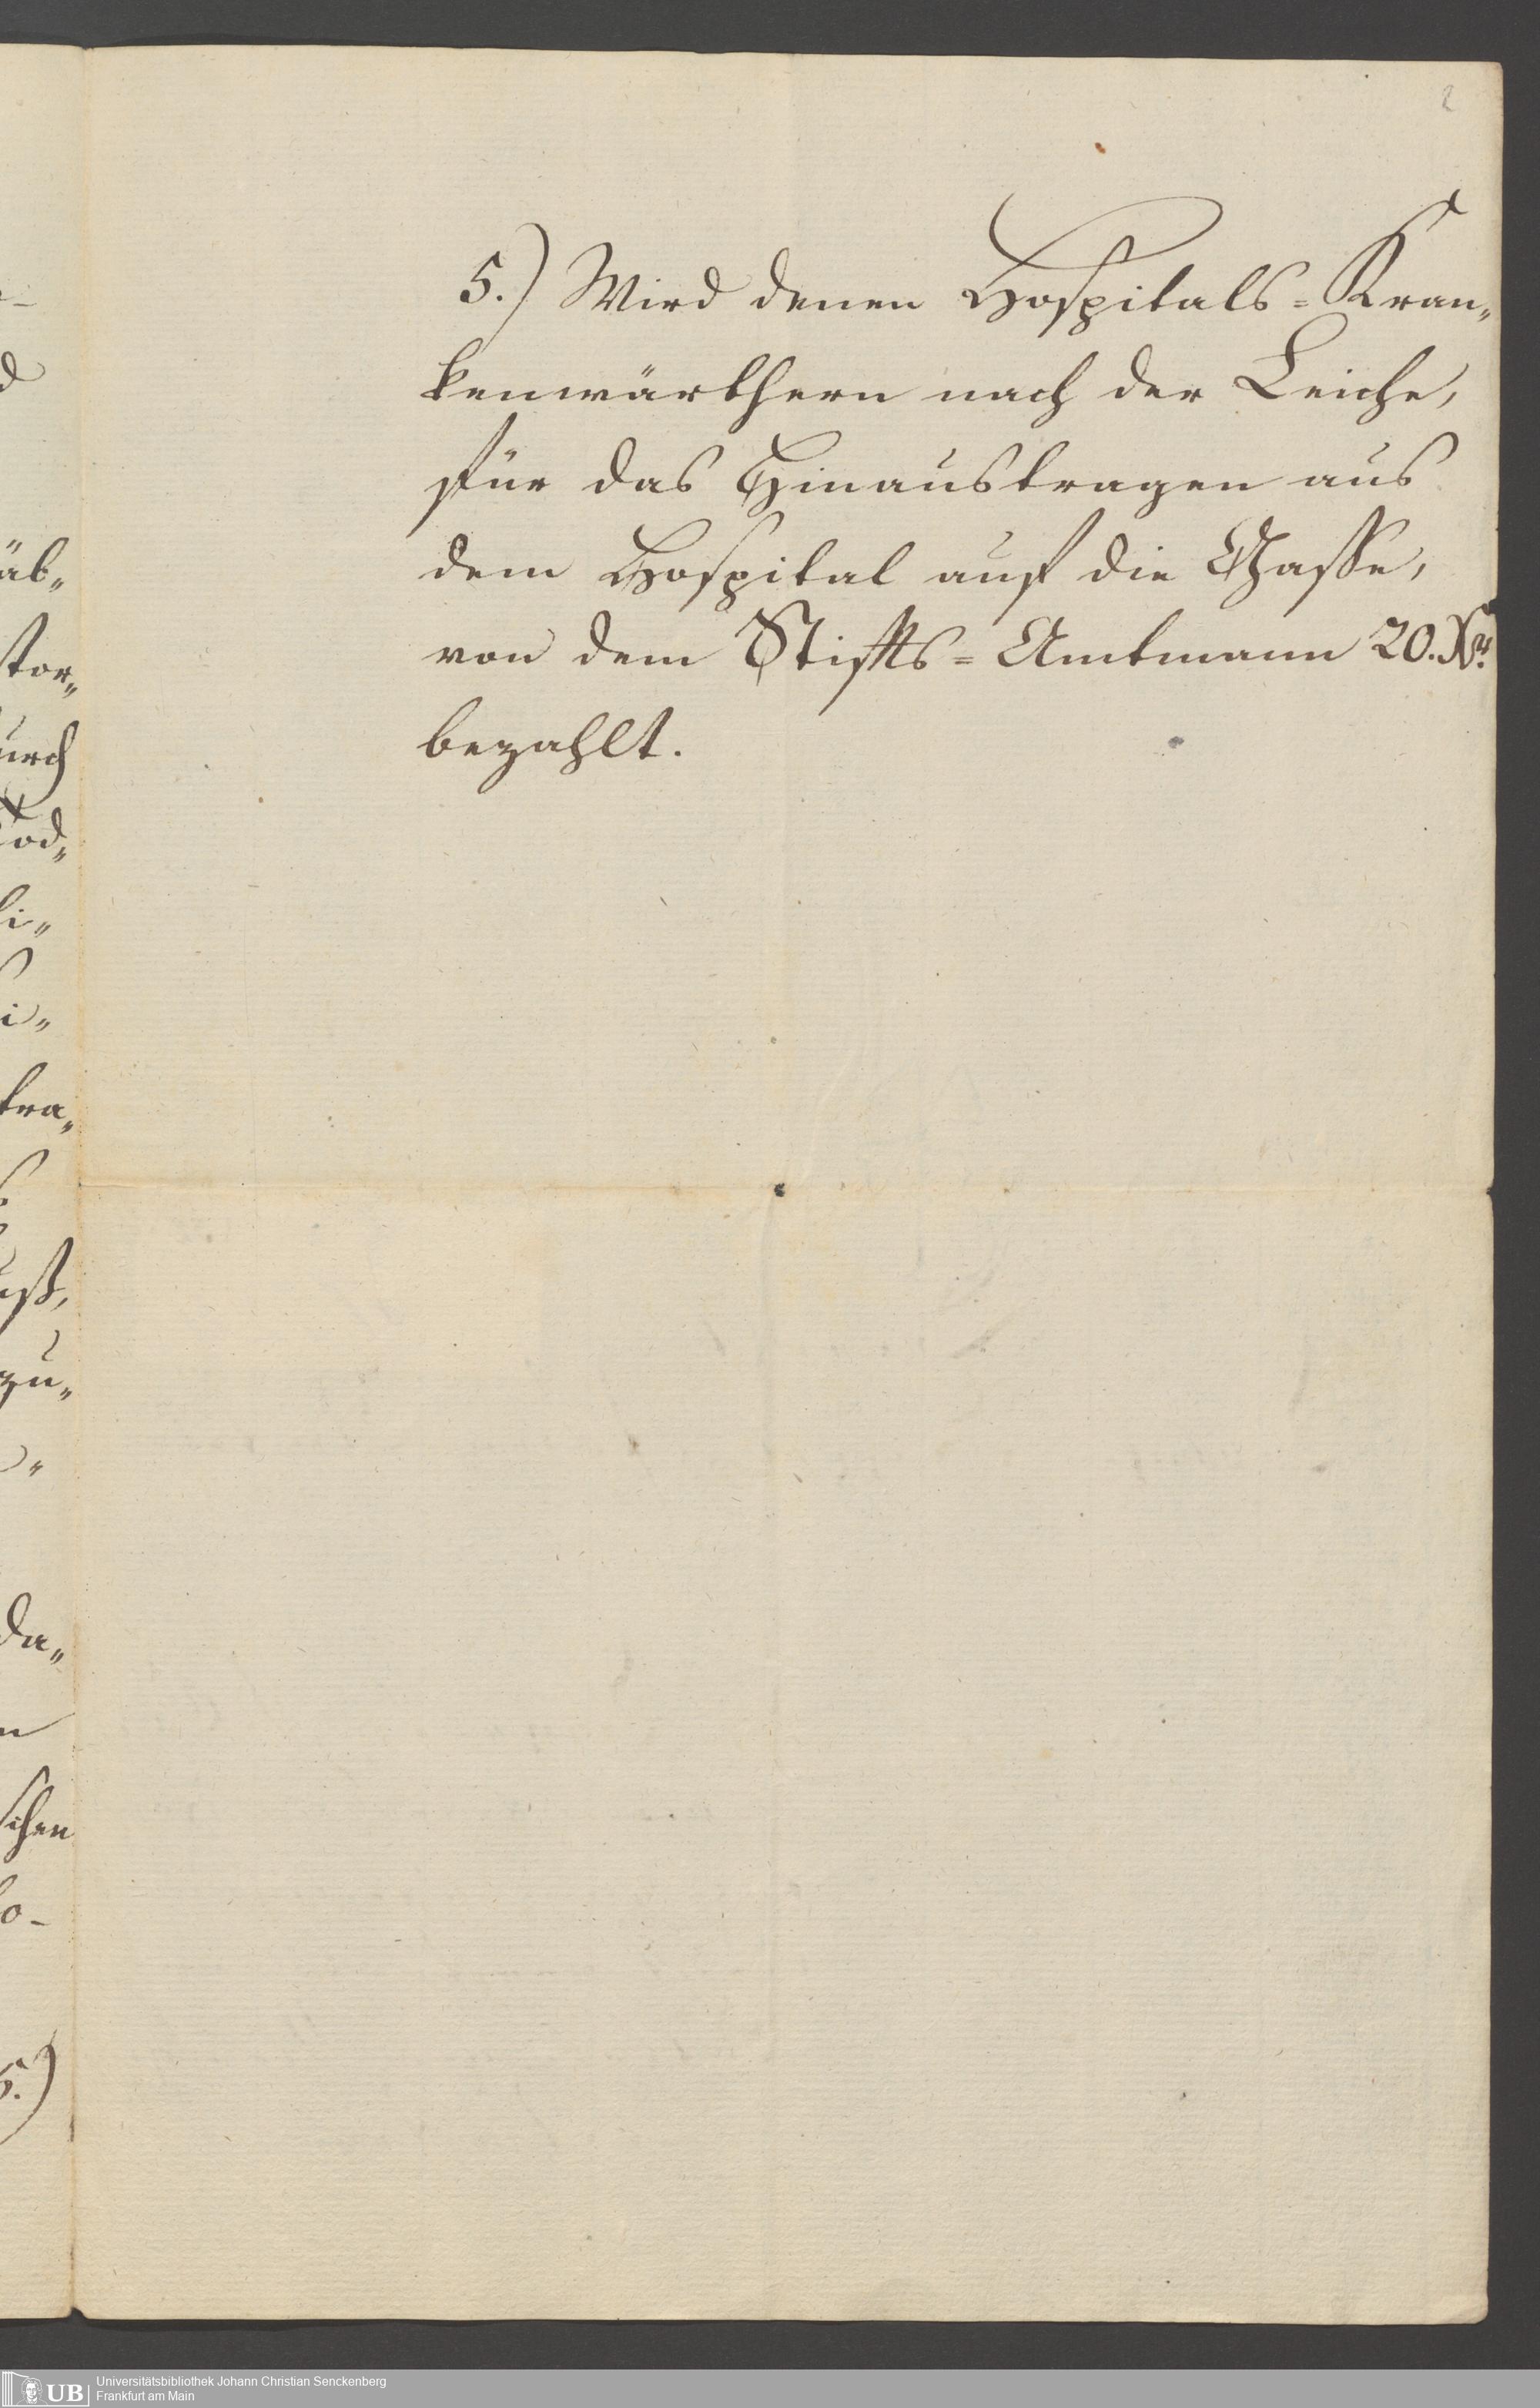 2
5.) Wird denen Hospitals=Kran„
kenwärthern nach der Leiche,
für das Hinaustragen aus
dem Hospital auf die Gasse,
von dem Stiffts=Amtmann 20. Xr.
bezahlt.
d
äb„
tor„
urch
Tod„
li„
i„
tra„
zu„
da„
n
schen
5.)
UB Universitätsbibliothek Johann Christian Senckenberg
Frankfurt am Main